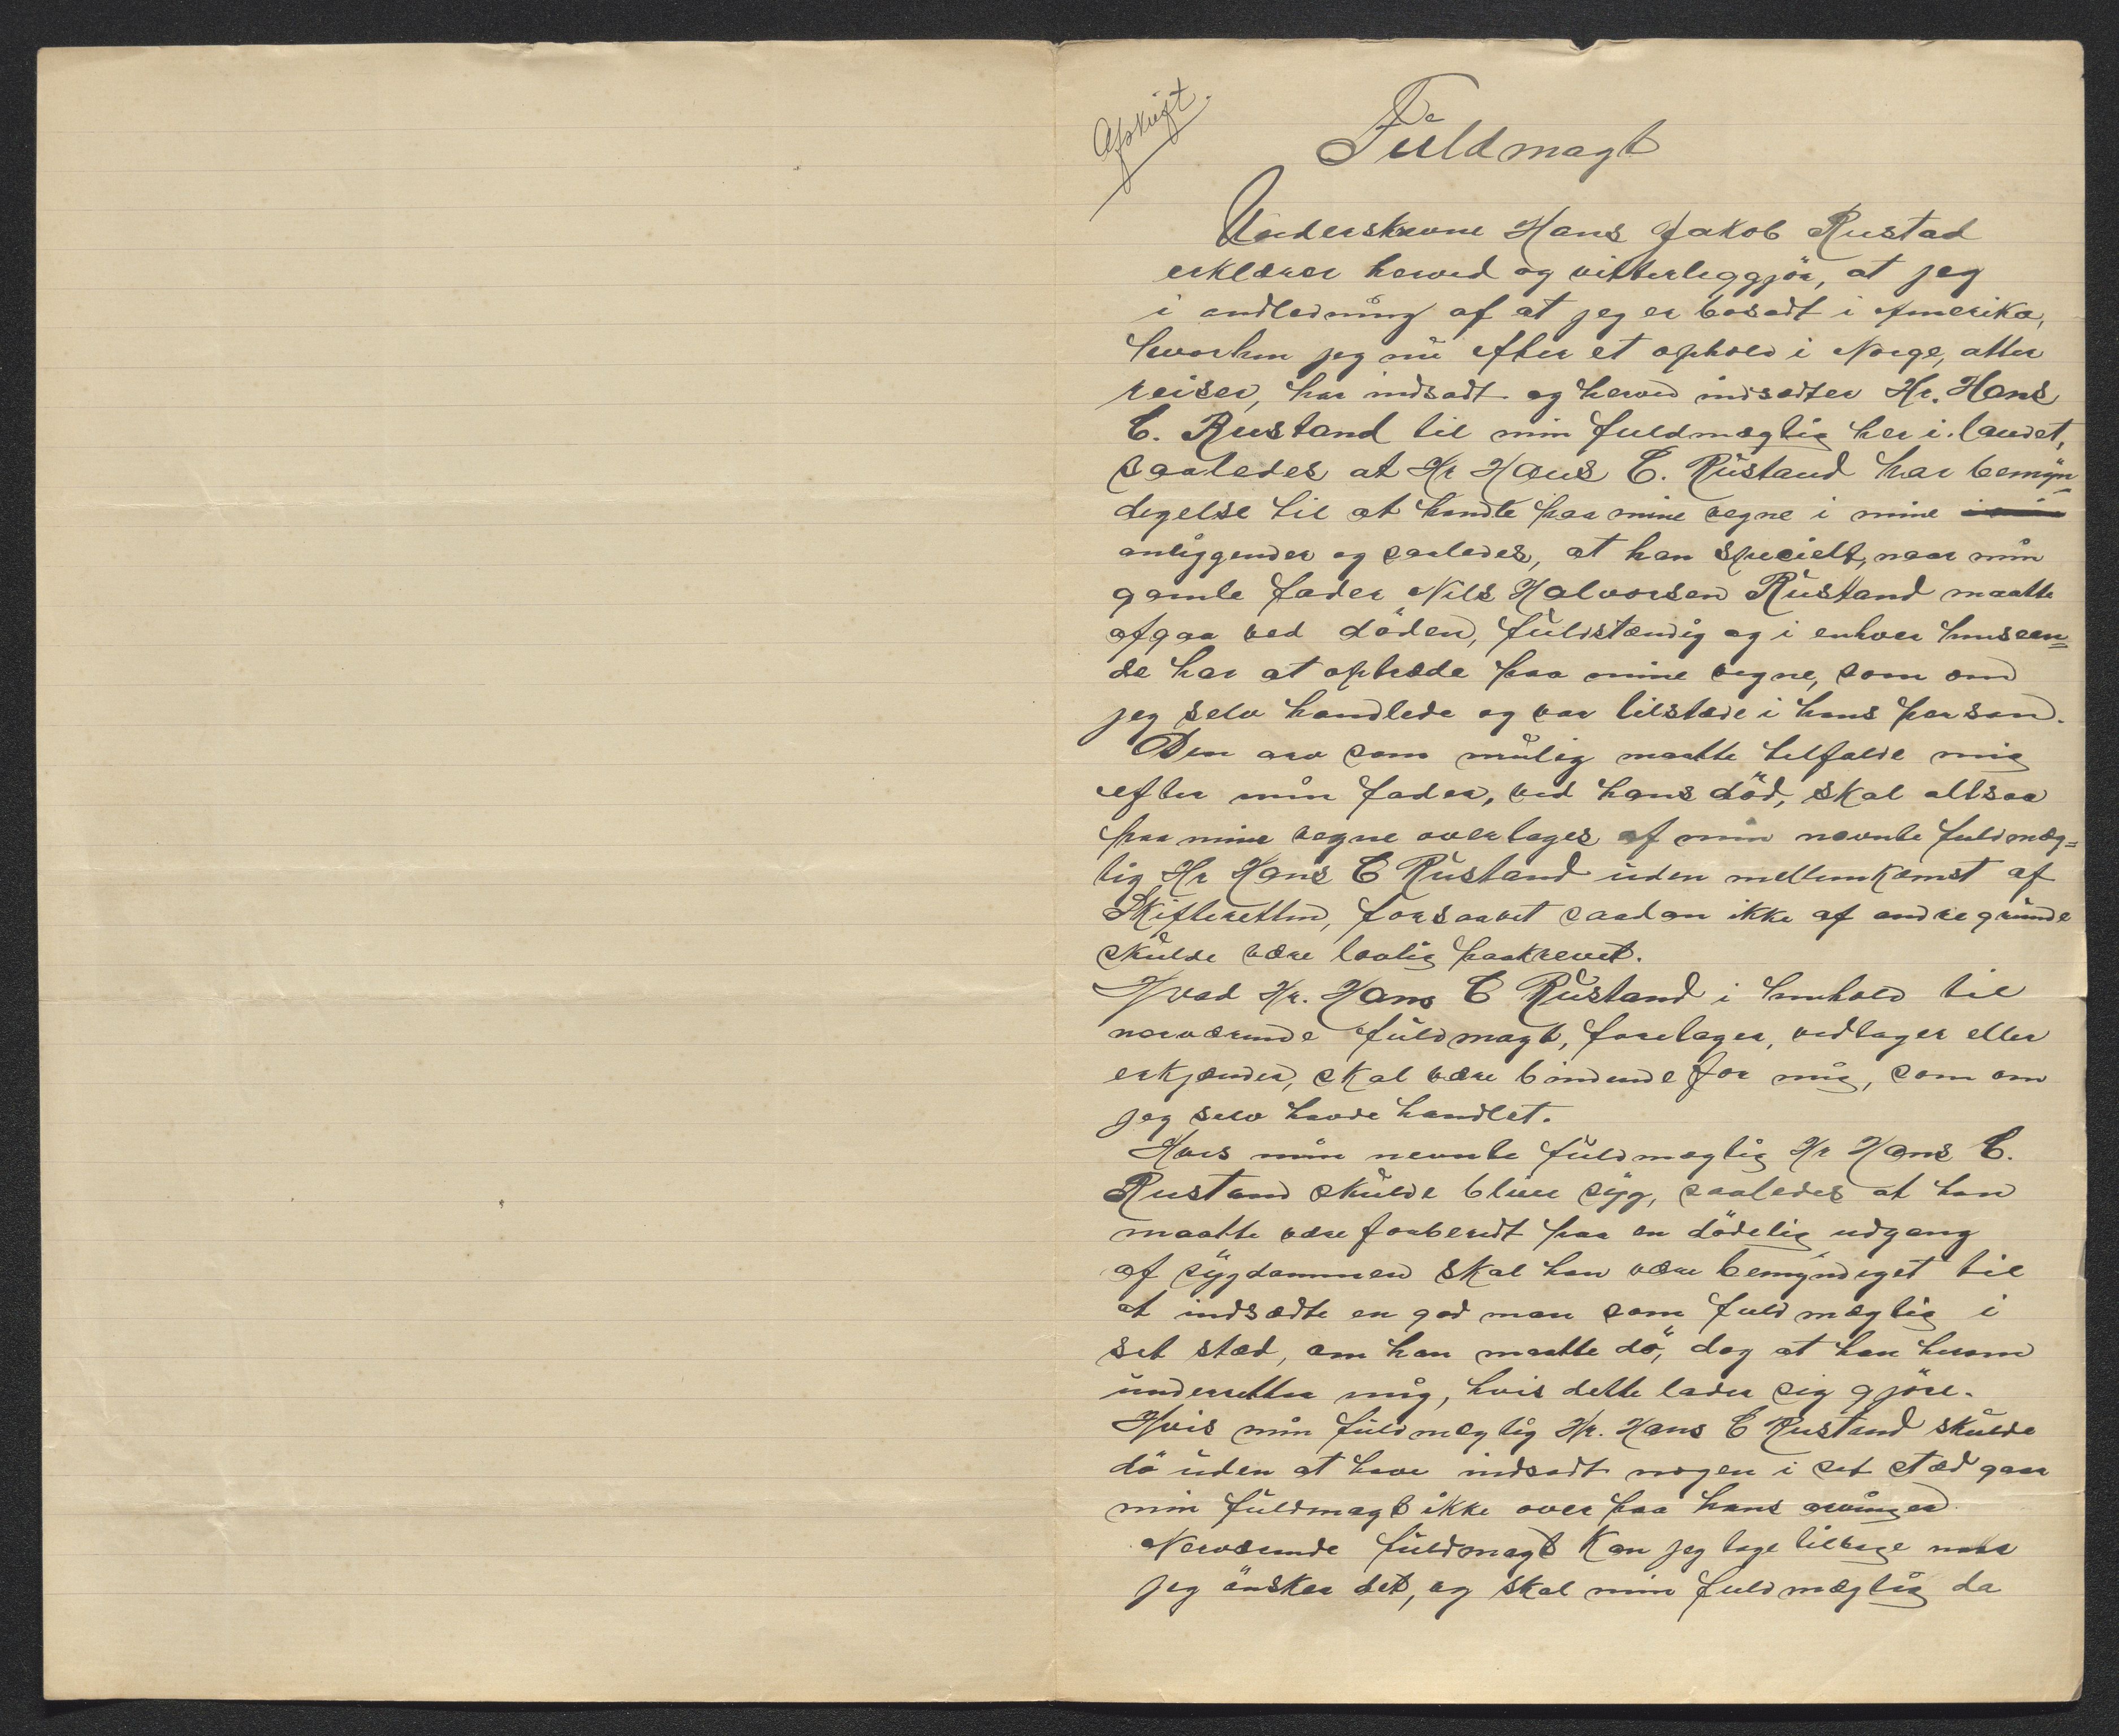 Afskrift.
Fuldmagt
Underskrevne Hans Jakob Rustad
erklærer herved og vitterleggjör, at jeg
i andledning af at jeg er bosadt i Amerika,
hvorhen jeg nu efter et ophold i Norge, atter
reiser, har indsadt og herved indsædter Hr. Hans
C. Rustand til min fuldmægtig her i landet,
saaledes at Hr Hans C. Rustand har bemyn-
degelse til at handle paa mine vegne i mine
anliggender og saaledes, at han specielt, naar min
gamle fader Nils Halvorsen Rustand maatte
afgaa ved döden, fuldstændig og i enhver henseen=
de har at optræde paa mine vegne, som om
jeg selv handlede og var tilstæde i hans person.
Den arv som mulig maatte tilfalde mig
efter min fader, ved hans död, skal altsaa
paa mine vegne overtages af min nevnte fuldmæg=
tig Hr Hans C Rustand uden mellemkomst af
Skifteretten, forsaavet saadan ikke af andre grunde
skulde være lovlig paakrevet.
Hvad Hr. Hans C Rustand i henhold til
nerværende fuldmagt, foretager, vedtager eller
erkjender, skal være bindende for mig, som om
jeg selv havde handlet.
Hvis min nevnte fuldmægtig Hr Hans C.
Rustand skulde blive syg, saaledes at han
maatte være forberedt paa en dödelig udgang
af sygdommen skal han være bemyndiget til
at indsædte en god man som fuldmægtig i
set stæd, om han maatte dö, dog at han herom
underretter mig, hvis dette lader sig gjöre.
Hvis min fuldmægtig Hr. Hans C Rustand skulde
dö uden at have indsadt nogen i set stæd gaar
min fuldmagt ikke over paa hans arvinger.
Nerværende fuldmagt kan jeg tage tilbage naar
jeg önsker det, og skal min fuldmægtig da